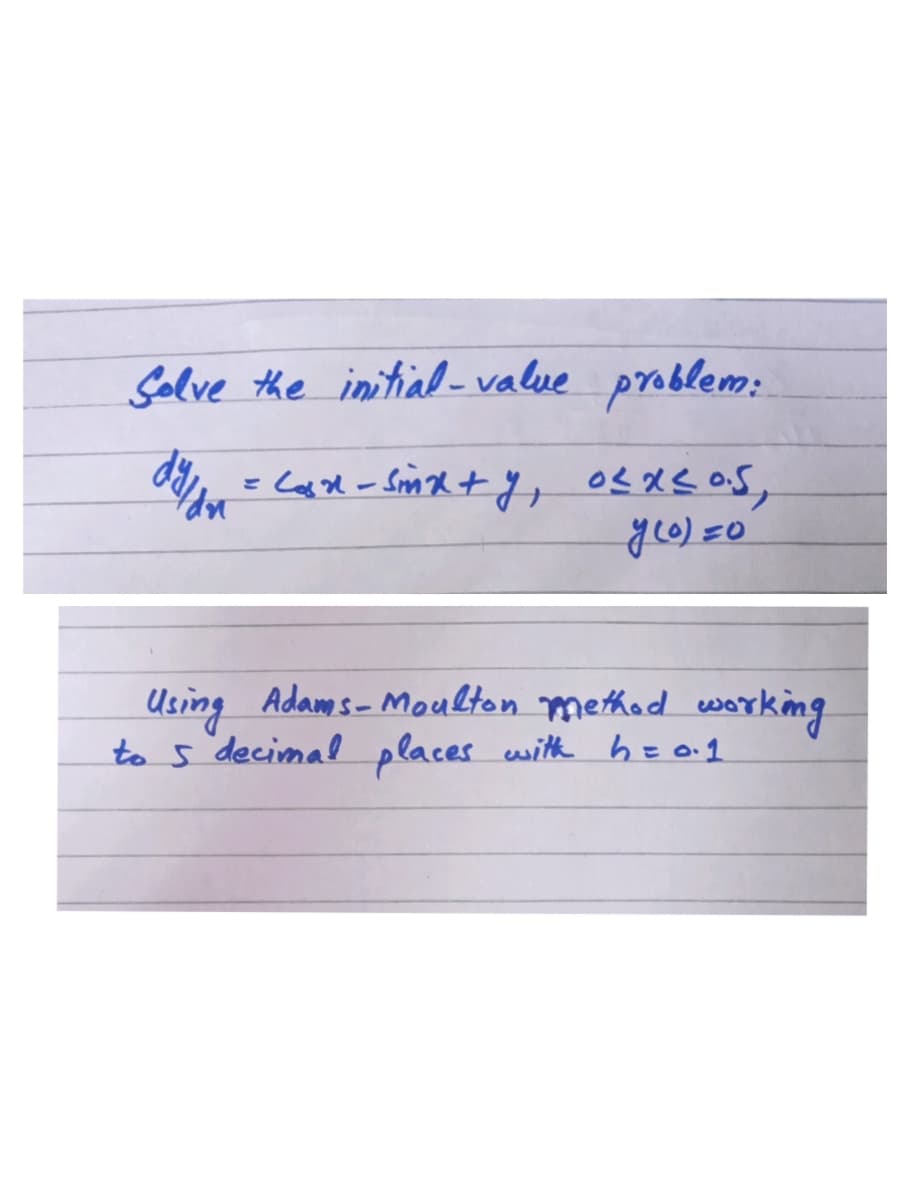 Solve the initial-value problem:
dy/dx = Cosx - Sinx + y, 0 ≤ x ≤ 0.5,
y(0) = 0
Using Adams-Moulton method working
to 5 decimal places with h = 0.1